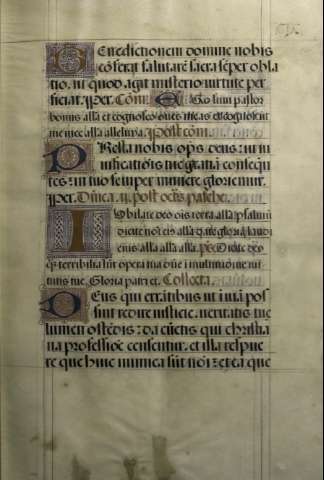 Benedictionem domine nobis
cōferat salutarē sacra sēper obla
tio. ut quod agit misterio virtute per
ficiat. ꝑper. Cōm̄. Ego sum pastor
bonus alla et cognosco oues meas et cognoscunt
me mee alla alleluya. post com̄.
PResta nobis om̄ps deus: ut ui
uificatiōis tue gratiā consequē
tes: in tuo semper munere gloriemur.
ꝑper. Dn̄ica. post octā pasche.
IUbilate deo oīs terra alla psalmū
dicite noī eiꝰ alla date gloriā laudi
eius alla alla alla. pś. Dicite deo
q̄ꝫ terribilia sūt opera tua dn̄e ī multitudine uir
tutis tue. Gloria patri et. Collecta.
DEus qui errātibus ut ī uiā pos
sint redire iusticie. ueritatis tue
lumen ostēdis: da cūctis qui christia
na professiōe censentur. et illa respue
re que huic inimica sūt noī: et ea que